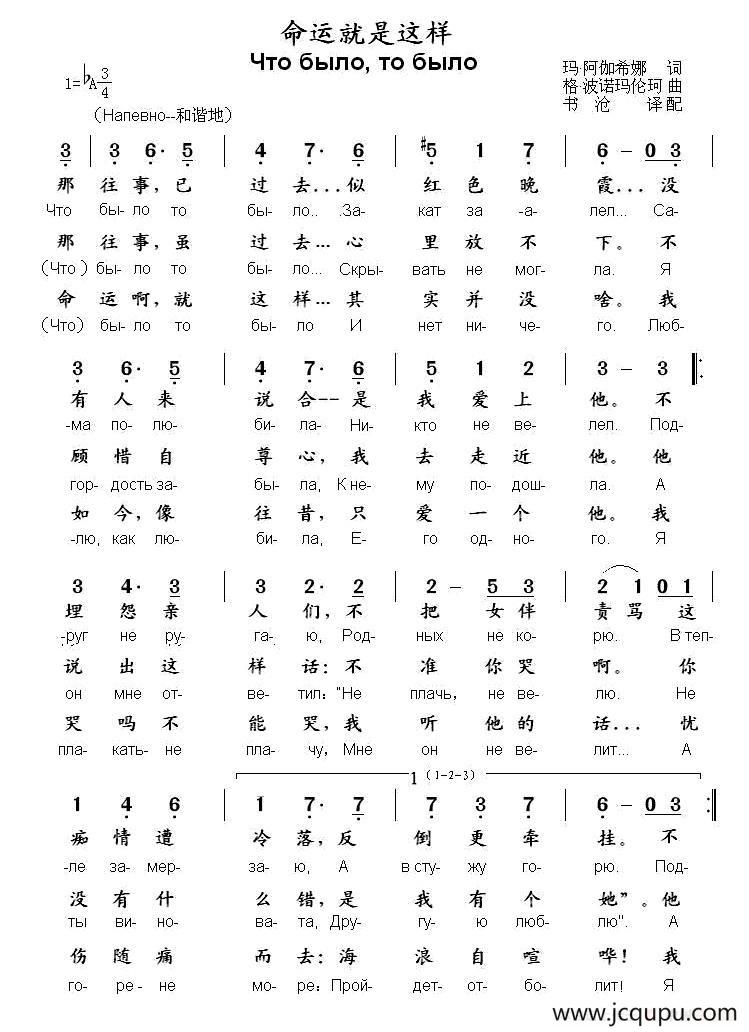 命运就是这样
Что было, то было
玛·阿伽希娜 词
1=♭A 3/4
格·波诺玛伦珂 曲
书沧 译配
(Напевно--和谐地)
3 | 3 6· 5 | 4 7· 6 | #5 1 7 | 6 – 0 3 |
那 往 事,已 过 去...似 红 色 晚 霞...没
Что бы- ло то бы- ло.. .За- кат за -а- лел... Са-
那 往 事,虽 过 去...心 里 放 不 下。不
(Что) бы- ло то бы- ло... Скры- вать не мог- ла. Я
命 运 啊,就 这 样...其 实 并 没 啥。我
(Что) бы- ло то бы- ло И нет ни- че- го. Люб-
3 6· 5 | 4 7· 6 | 5 1 2 | 3 – 3 ‖:
有 人 来 说 合--是 我 爱 上 他。不
-ма по- лю- би- ла- Ни- кто не ве- лел. Под-
顾 惜 自 尊 心,我 去 走 近 他。他
гор- дость за- бы- ла, К не- му по- дош- ла. А
如 今,像 往 昔,只 爱 一 个 他。我
-лю, как лю- би- ла, Е- го од- но- го. Я
3 4· 3 | 3 2· 2 | 2 – 5 3 | 2 1 0 1 |
埋 怨 亲 人 们,不 把 女 伴 责 骂 这
-руг не ру- га- ю, Род- ных не ко- рю. В теп-
说 出 这 样 话:不 准 你 哭 啊。你
он мне от- ве- тил: "Не плачь, не ве- лю. Не
哭 吗 不 能 哭,我 听 他 的 话... 忧
пла- кать- не пла- чу, Мне он не ве- лит... А
1 (1-2-3)
1 4 6 | 1 7· 7 | 7 3 7 | 6 – 0 3 :‖
痴 情 遭 冷 落,反 倒 更 牵 挂。不
-ле за- мер- за- ю, А в сту- жу го- рю. Под-
没 有 什 么 错,是 我 有 个 她”。他
ты ви- но- ва- та, Дру- гу- ю люб- лю". А
伤 随 痛 而 去:海 浪 自 喧 哗!我
го- ре - не мо- ре : Прой- дет- от- бо- лит! Я
www.jcqupu.com